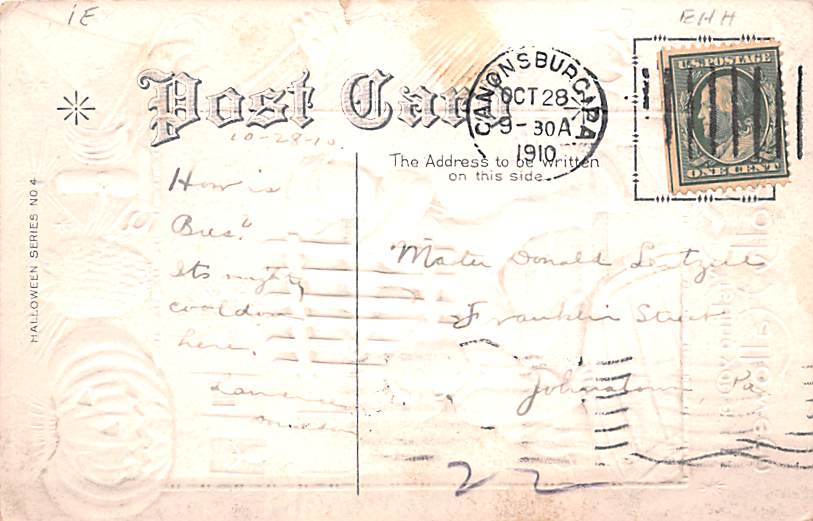 IE
EHH
Post Card
CANONSBURG, PA
OCT 28
9-30A
1910
U.S. POSTAGE
ONE CENT
10-28-10
The Address to be written
on this side.
HALLOWEEN SERIES NO 4
How is
Bus.
Its mighty
cool down
here.
Lawrence
Master Donald
Franklin Street
Johnstown, Pa
22